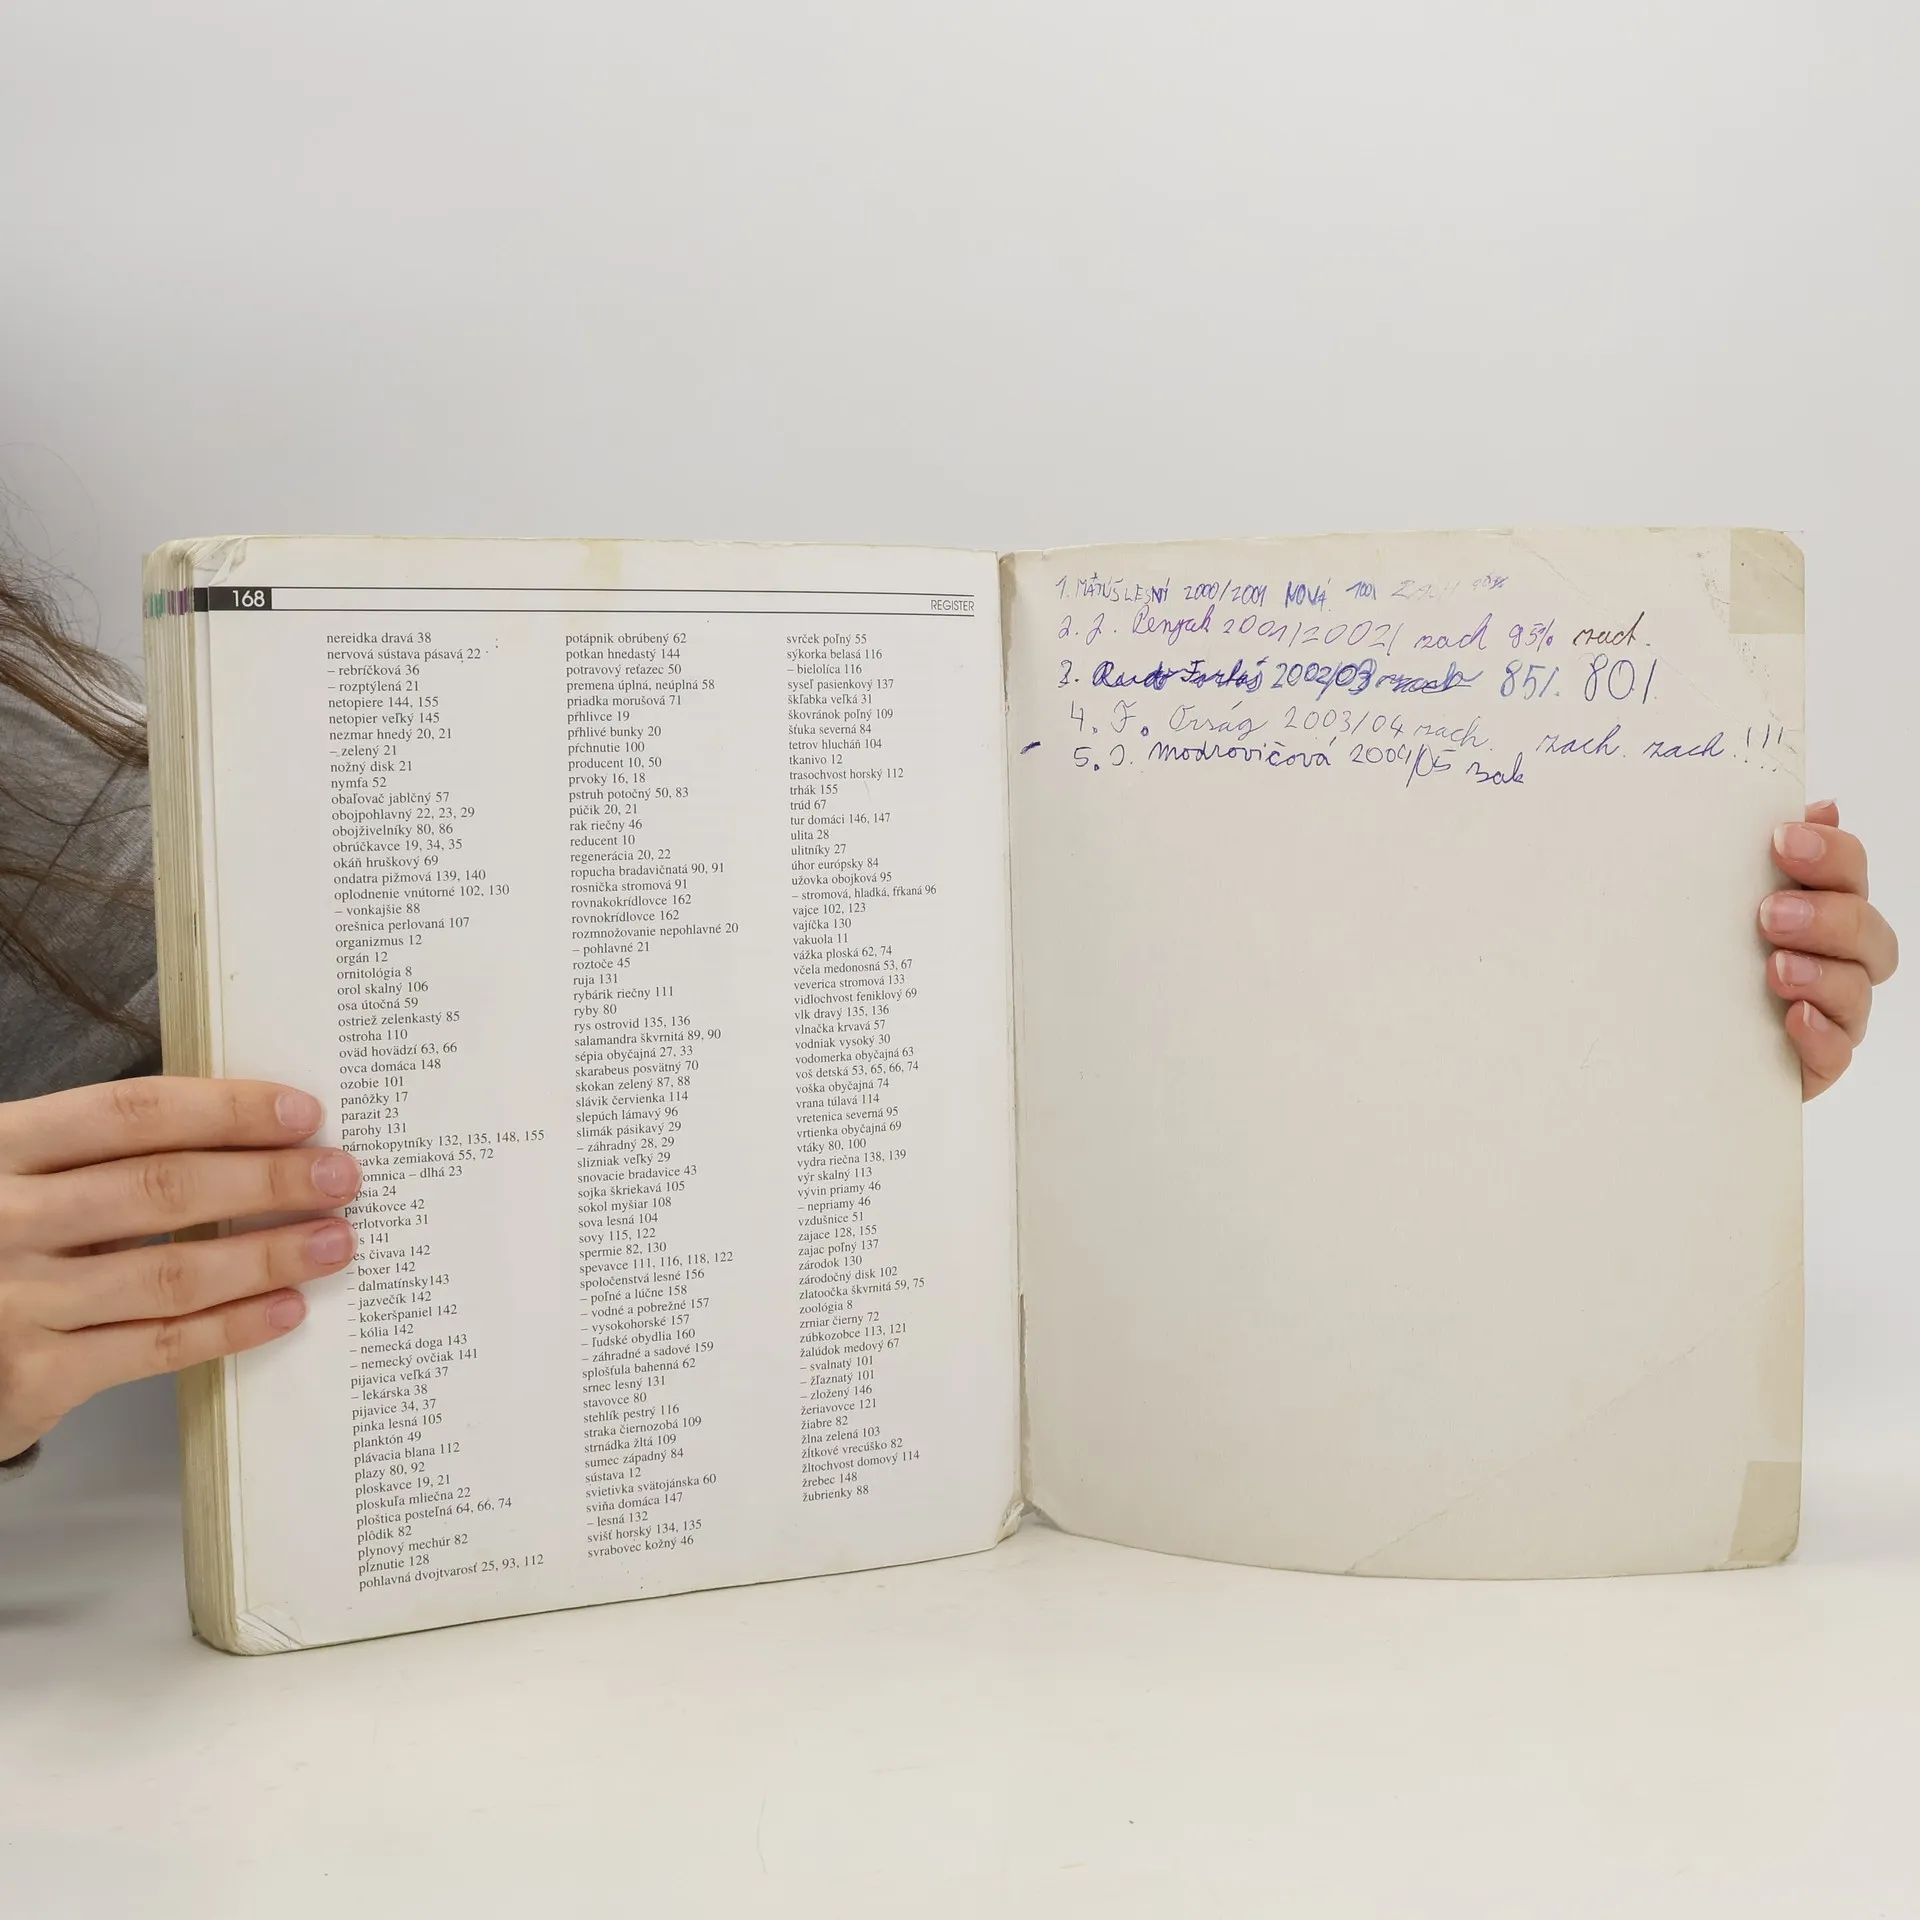 168
REGISTER
nereidka dravá 38
nervová sústava pásavá 22
– rebríčková 36
– rozptýlená 21
netopiere 144, 155
netopier veľký 145
nezmar hnedý 20, 21
– zelený 21
nožný disk 21
nymfa 52
obaľovač jablčný 57
obojpohlavný 22, 23, 29
obojživelníky 80, 86
obrúčkavce 19, 34, 35
okáň hruškový 69
ondatra pižmová 139, 140
oplodnenie vnútorné 102, 130
– vonkajšie 88
orešnica perlovaná 107
organizmus 12
orgán 12
ornitológia 8
orol skalný 106
osa útočná 59
ostriež zelenkastý 85
ostroha 110
ovád hovädzí 63, 66
ovca domáca 148
ozobie 101
panôžky 17
parazit 23
parohy 131
párnokopytníky 132, 135, 148, 155
savka zemiaková 55, 72
omnica – dlhá 23
psia 24
pavúkovce 42
erlotvorka 31
s 141
es čivava 142
– boxer 142
– dalmatínsky143
– jazvečík 142
– kokeršpaniel 142
– kólia 142
– nemecká doga 143
– nemecký ovčiak 141
pijavica veľká 37
– lekárska 38
pijavice 34, 37
pinka lesná 105
planktón 49
plávacia blana 112
plazy 80, 92
ploskavce 19, 21
ploskuľa mliečna 22
ploštica posteľná 64, 66, 74
plôdik 82
plynový mechúr 82
pĺznutie 128
pohlavná dvojtvarosť 25, 93, 112
potápnik obrúbený 62
potkan hnedastý 144
potravový reťazec 50
premena úplná, neúplná 58
priadka morušová 71
pŕhlivce 19
pŕhlivé bunky 20
pŕchnutie 100
producent 10, 50
prvoky 16, 18
pstruh potočný 50, 83
púčik 20, 21
rak riečny 46
reducent 10
regenerácia 20, 22
ropucha bradavičnatá 90, 91
rosnička stromová 91
rovnakokrídlovce 162
rovnokrídlovce 162
rozmnožovanie nepohlavné 20
– pohlavné 21
roztoče 45
ruja 131
rybárik riečny 111
ryby 80
rys ostrovid 135, 136
salamandra škvrnitá 89, 90
sépia obyčajná 27, 33
skarabeus posvätný 70
skokan zelený 87, 88
slávik červienka 114
slepúch lámavý 96
slimák pásikavý 29
– záhradný 28, 29
slizniak veľký 29
snovacie bradavice 43
sojka škriekavá 105
sokol myšiar 108
sova lesná 104
sovy 115, 122
spermie 82, 130
spevavce 111, 116, 118, 122
spoločenstvá lesné 156
– poľné a lúčne 158
– vodné a pobrežné 157
– vysokohorské 157
– ľudské obydlia 160
– záhradné a sadové 159
splošťula bahenná 62
srnec lesný 131
stavovce 80
stehlík pestrý 116
straka čiernozobá 109
strnádka žltá 109
sumec západný 84
sústava 12
svietivka svätojánska 60
sviňa domáca 147
– lesná 132
svišť horský 134, 135
svrabovec kožný 46
svrček poľný 55
sýkorka belasá 116
– bielolíca 116
syseľ pasienkový 137
škľabka veľká 31
škovránok poľný 109
šťuka severná 84
tetrov hlucháň 104
tkanivo 12
trasochvost horský 112
trhák 155
trúd 67
tur domáci 146, 147
ulita 28
ulitníky 27
úhor európsky 84
užovka obojková 95
– stromová, hladká, fŕkaná 96
vajce 102, 123
vajíčka 130
vakuola 11
vážka ploská 62, 74
včela medonosná 53, 67
veverica stromová 133
vidlochvost feniklový 69
vlk dravý 135, 136
vlnačka krvavá 57
vodniak vysoký 30
vodomerka obyčajná 63
voš detská 53, 65, 66, 74
voška obyčajná 74
vrana túlavá 114
vretenica severná 95
vrtienka obyčajná 69
vtáky 80, 100
vydra riečna 138, 139
výr skalný 113
vývin priamy 46
– nepriamy 46
vzdušnice 51
zajace 128, 155
zajac poľný 137
zárodok 130
zárodočný disk 102
zlatoočka škvrnitá 59, 75
zoológia 8
zrniar čierny 72
zúbkozobce 113, 121
žalúdok medový 67
– svalnatý 101
– žľaznatý 101
– zložený 146
žeriavovce 121
žiabre 82
žlna zelená 103
žĺtkové vrecúško 82
žltochvost domový 114
žrebec 148
žubrienky 88
1. MATÚŠ LESNÝ 2000/2001 NOVÁ
2. J. Penjak 2001/2002/ zach 95% zach.
3. 2002/03 85%. 80%
4. F. Orság 2003/04 zach. zach. zach!!!
5. J. Modrovičová 2004/05 zak